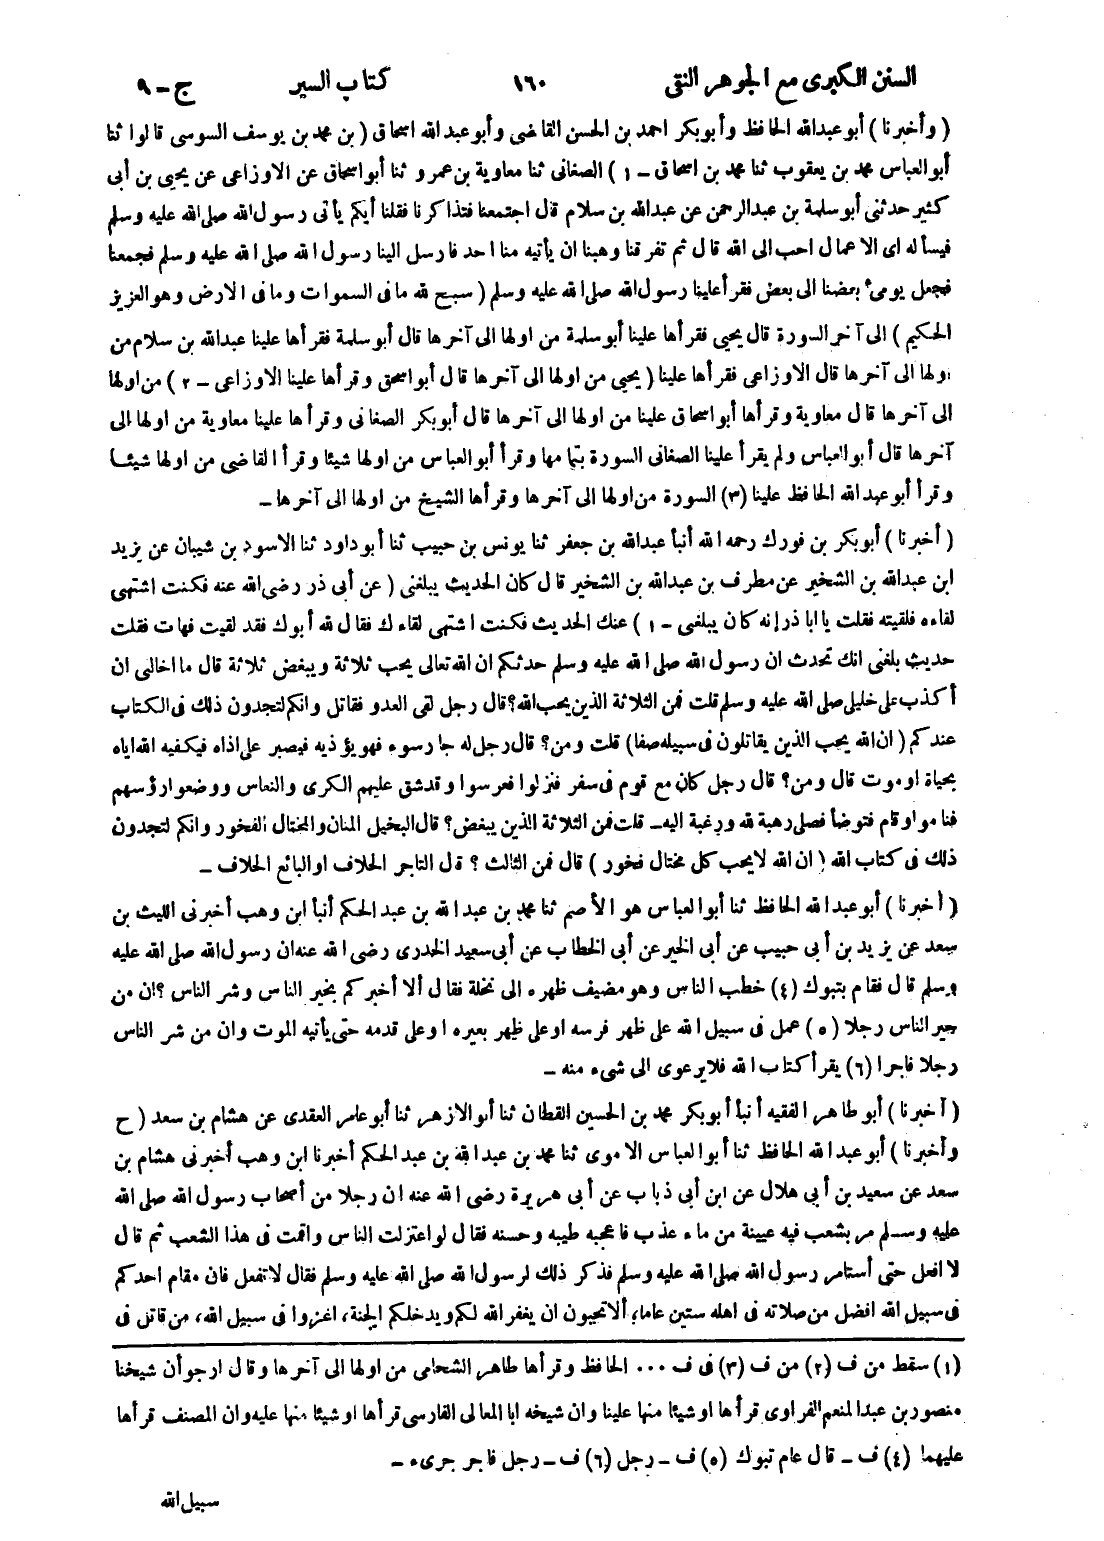 السنن الكبرى مع الجوهر النقى ١٦٠ كتاب السير ج - ٩
( وأخبرنا ) أبو عبدالله الحافظ وأبوبكر احمد بن الحسن القاضى وأبو عبد الله اسحاق ( بن محمد بن يوسف السوسى قالوا ثنا
أبو العباس محمد بن يعقوب ثنا محمد بن اسحاق - ١ ) الصغانى ثنا معاوية بن عمرو ثنا أبو اسحاق عن الاوزاعى عن يحيى بن أبى
كثير حدثنى أبو سلمة بن عبدالرحمن عن عبدالله بن سلام قال اجتمعنا فتذاكرنا فقلنا أيكم يأتى رسول الله صلى الله عليه وسلم
فيسأله اى الاعمال احب الى الله قال ثم تفرقنا وهبنا ان يأتيه منا احد فارسل الينا رسول الله صلى الله عليه وسلم فجمعنا
فجعل يومىء بعضنا الى بعض فقرأ علينا رسول الله صلى الله عليه وسلم ( سبح لله ما فى السموات وما فى الارض وهو العزيز
الحكيم ) الى آخر السورة قال يحيى فقرأها علينا أبو سلمة من اولها الى آخرها قال أبو سلمة فقرأها علينا عبدالله بن سلام من
اولها الى آخرها قال الاوزاعى فقرأها علينا ( يحيى من اولها الى آخرها قال أبو اسحق وقرأها علينا الاوزاعى - ٢ ) من اولها
الى آخرها قال معاوية وقرأها أبو اسحاق علينا من اولها الى آخرها قال أبوبكر الصغانى وقرأها علينا معاوية من اولها الى
آخرها قال أبو العباس ولم يقرأ علينا الصغانى السورة بتمامها وقرأ أبو العباس من اولها شيئا وقرأ القاضى من اولها شيئا
وقرأ أبو عبدالله الحافظ علينا (٣) السورة من اولها الى آخرها وقرأها الشيخ من اولها الى آخرها -
( أخبرنا ) أبوبكر بن فورك رحمه الله أنبأ عبدالله بن جعفر ثنا يونس بن حبيب ثنا أبو داود ثنا الاسود بن شيبان عن يزيد
ابن عبدالله بن الشخير عن مطرف بن عبدالله بن الشخير قال كان الحديث يبلغنى ( عن أبى ذر رضى الله عنه فكنت اشتهى
لقاءه فلقيته فقلت يا ابا ذر إنه كان يبلغنى - ١ ) عنك الحديث فكنت اشتهى لقاءك فقال لله أبوك فقد لقيت فهات فقلت
حديث بلغنى انك تحدث ان رسول الله صلى الله عليه وسلم حدثكم ان الله تعالى يحب ثلاثة ويبغض ثلاثة قال ما اخالنى ان
أكذب على خليلى صلى الله عليه وسلم قلت فمن الثلاثة الذين يحب الله؟ قال رجل لقى العدو فقاتل وانكم لتجدون ذلك فى الكتاب
عندكم ( ان الله يحب الذين يقاتلون فى سبيله صفا) قلت ومن؟ قال رجل له جار سوء فهو يؤذيه فيصبر على اذاه فيكفيه الله اياه
بحياة او موت قال ومن؟ قال رجل كان مع قوم فى سفر فنزلوا فعرسوا وقد شق عليهم الكرى والنعاس ووضعوا رؤسهم
فناموا وقام فتوضأ فصلى رهبة لله ورغبة اليه - قلت فمن الثلاثة الذين يبغض؟ قال البخيل المنان والمختال الفخور وانكم لتجدون
ذلك فى كتاب الله ( ان الله لا يحب كل مختال فخور ) قال فمن الثالث ؟ قال التاجر الحلاف او البائع الحلاف -
( أخبرنا ) أبو عبد الله الحافظ ثنا أبو العباس هو الأصم ثنا محمد بن عبد الله بن عبد الحكم أنبأ ابن وهب أخبرنى الليث بن
سعد عن يزيد بن أبى حبيب عن أبى الخير عن أبى الخطاب عن أبى سعيد الخدرى رضى الله عنه ان رسول الله صلى الله عليه
وسلم قال فقام بتبوك (٤) خطب الناس وهو مضيف ظهره الى نخلة فقال ألا أخبركم بخير الناس وشر الناس ؟ ان من
خير الناس رجلا (٥) عمل فى سبيل الله على ظهر فرسه او على ظهر بعيره او على قدمه حتى يأتيه الموت وان من شر الناس
رجلا فاجرا (٦) يقرأ كتاب الله فلا يرعوى الى شىء منه -
( أخبرنا ) أبو طاهر الفقيه أنبأ أبوبكر محمد بن الحسين القطان ثنا أبو الازهر ثنا أبو عامر العقدى عن هشام بن سعد ( ح
وأخبرنا ) أبو عبد الله الحافظ ثنا أبو العباس الاموى ثنا محمد بن عبد الله بن عبد الحكم أخبرنا ابن وهب أخبرنى هشام بن
سعد عن سعيد بن أبى هلال عن ابن أبى ذباب عن أبى هريرة رضى الله عنه ان رجلا من أصحاب رسول الله صلى الله
عليه وسلم مر بشعب فيه عيينة من ماء عذب فاعجبه طيبه وحسنه فقال لو اعتزلت الناس واقمت فى هذا الشعب ثم قال
لا افعل حتى أستامر رسول الله صلى الله عليه وسلم فذكر ذلك لرسول الله صلى الله عليه وسلم فقال لا تفعل فان مقام احدكم
فى سبيل الله افضل من صلاته فى اهله ستين عاما، ألا تحبون ان يغفر الله لكم ويدخلكم الجنة، اغزوا فى سبيل الله، من قاتل فى
(١) سقط من ف (٢) من ف (٣) فى ف ٠٠٠ الحافظ وقرأها طاهر الشحامى من اولها الى آخرها وقال ارجو أن شيخنا
منصور بن عبد المنعم الفراوى قرأها او شيئا منها علينا وان شيخه ابا المعالى الفارسى قرأها او شيئا منها عليه وان المصنف قرأها
عليهما (٤) ف - قال عام تبوك (٥) ف - رجل (٦) ف - رجل فاجر جرىء -
سبيل الله